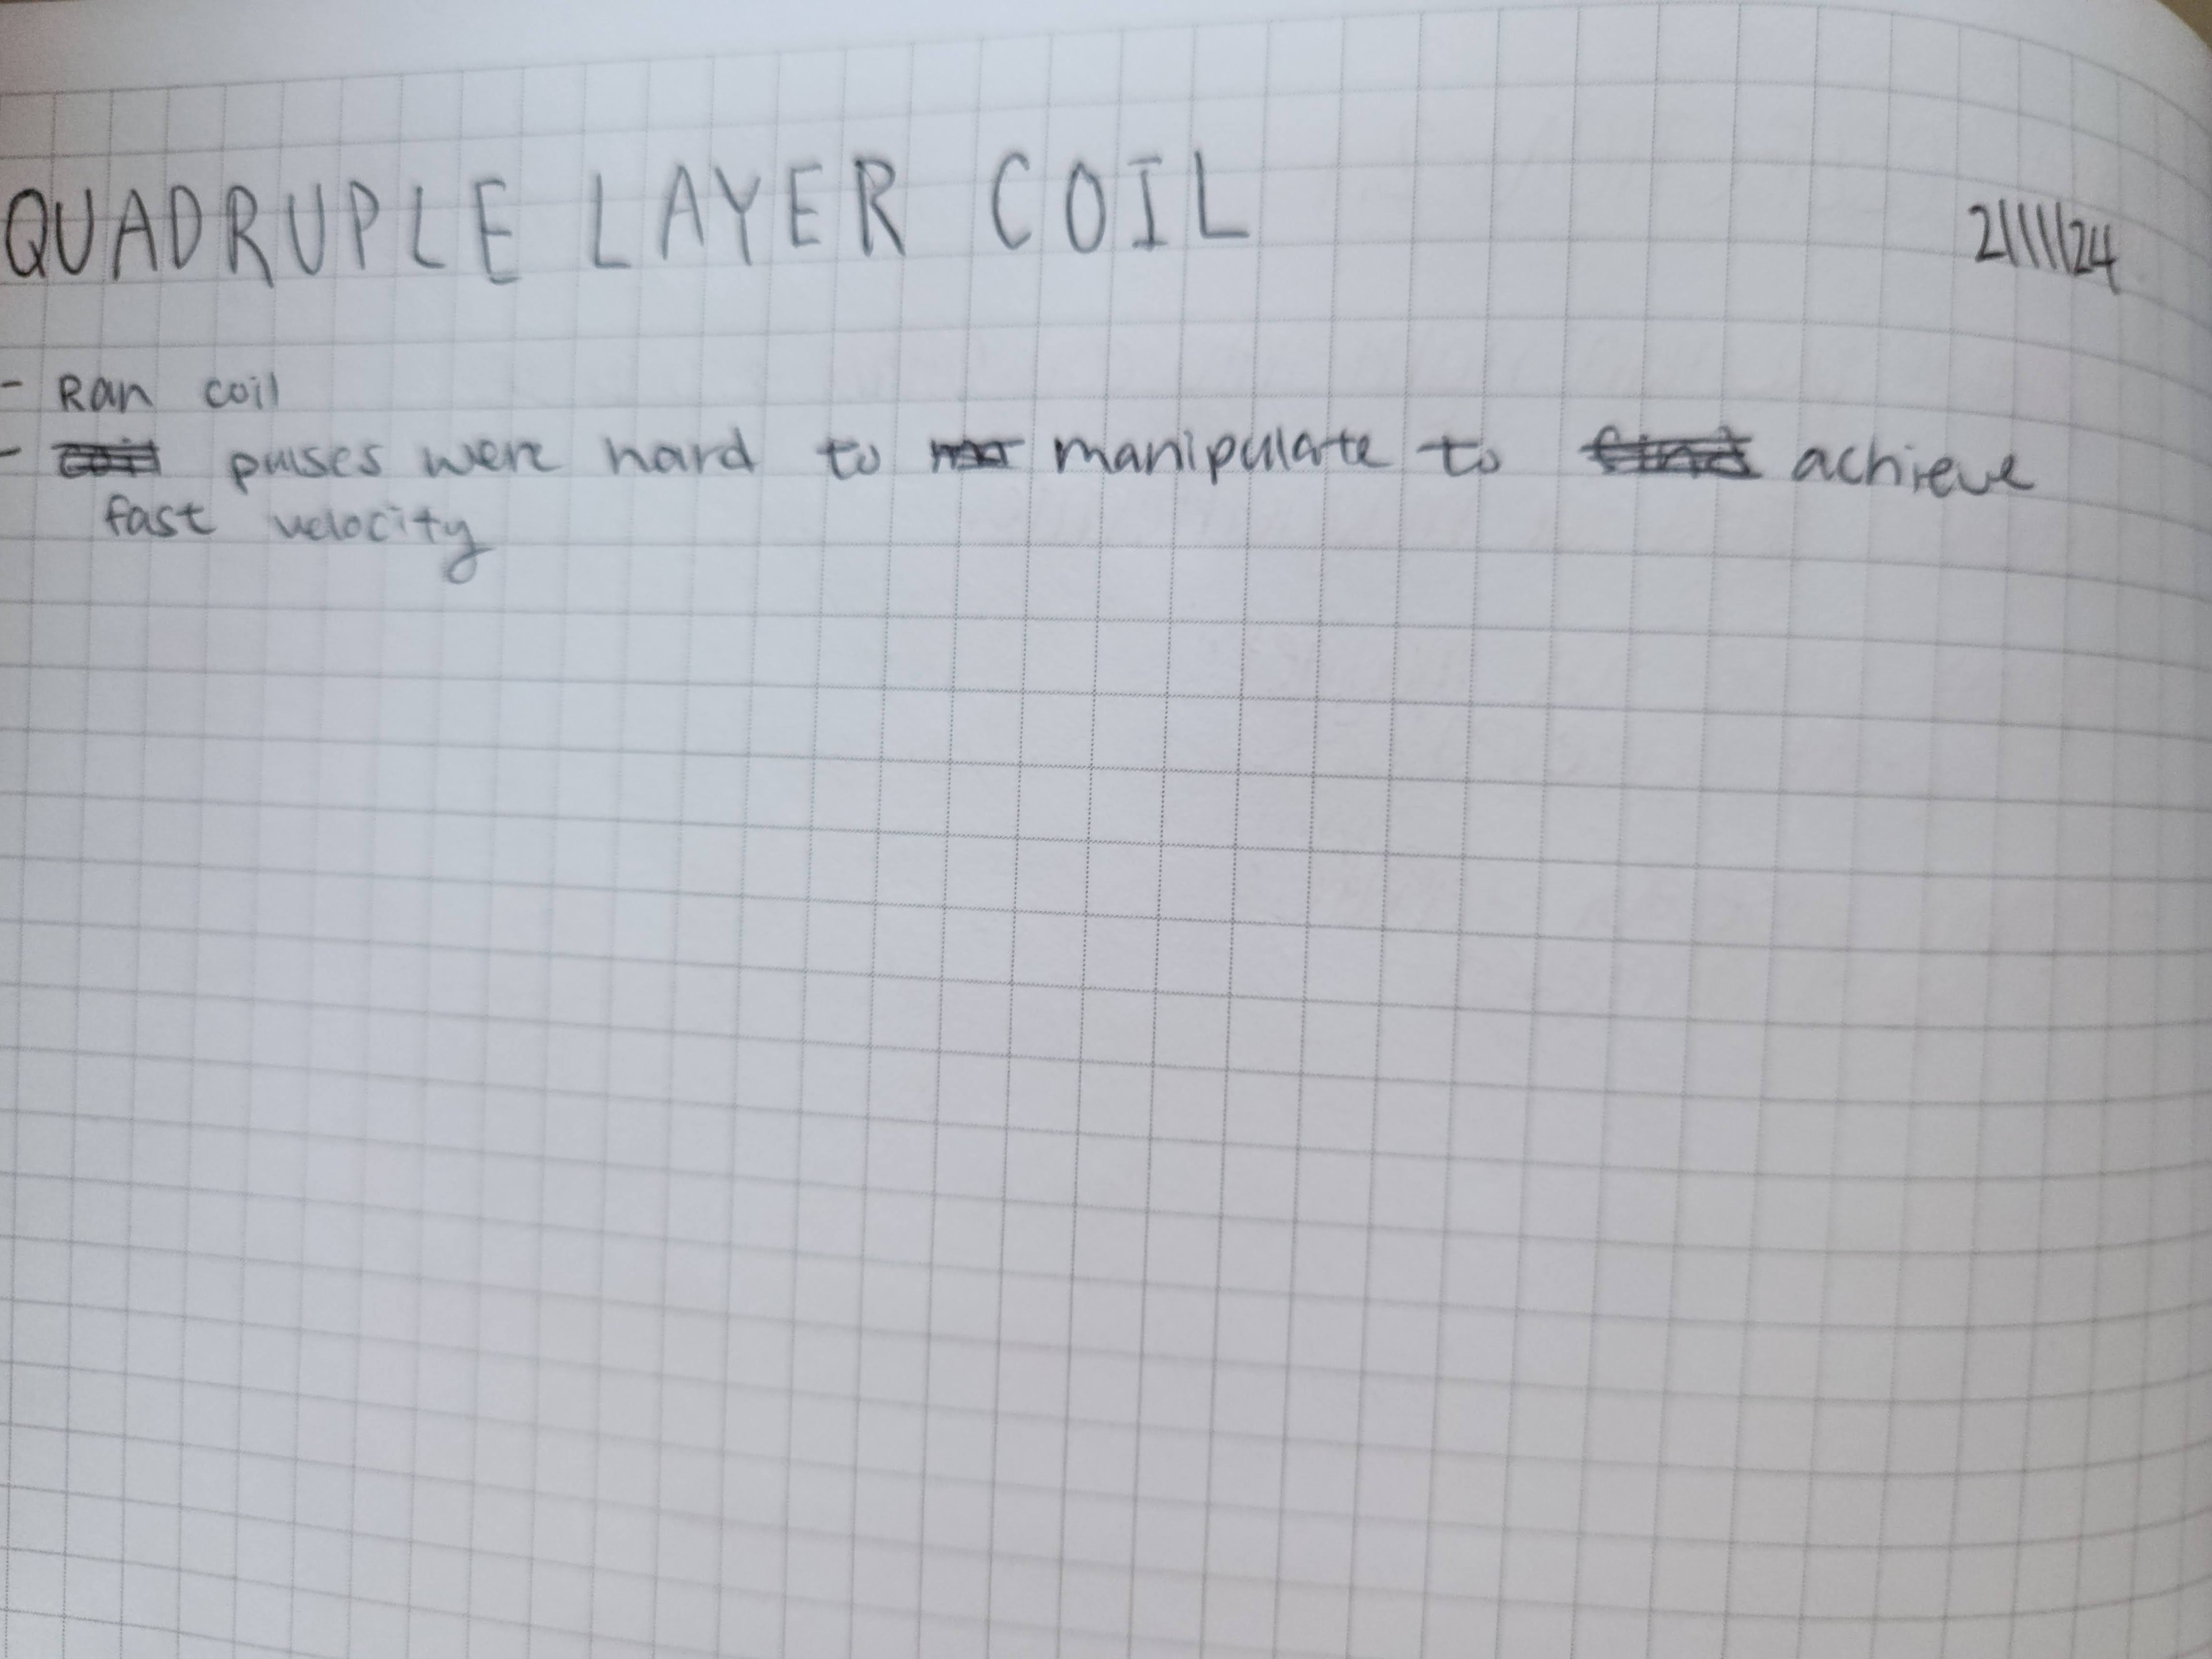 QUADRUPLE LAYER COIL 21/11/24
- Ran coil
- pulses were hard to manipulate to achieve
fast velocity